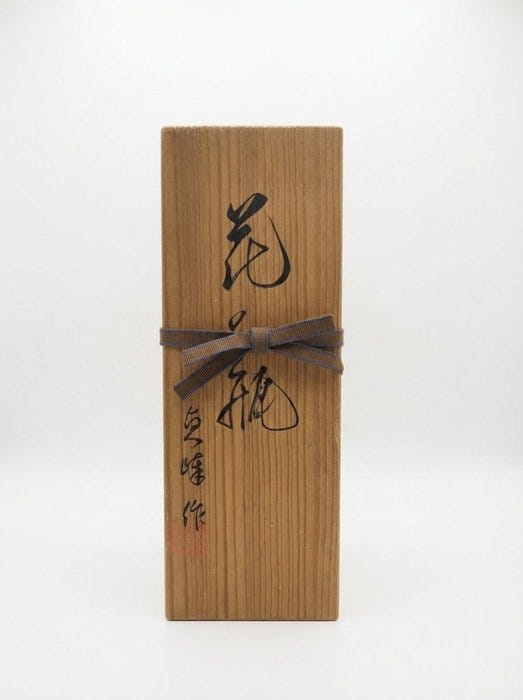 花瓶
貞峰作